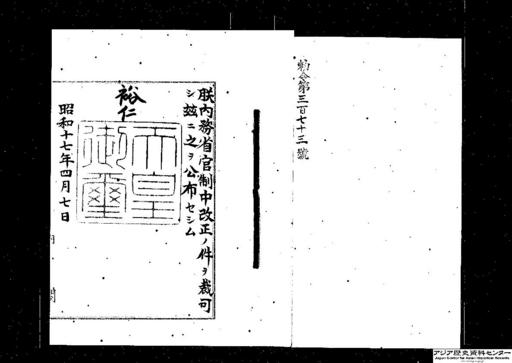 勅令第三百七十三號
朕內務省官制中改正ノ件ヲ裁可
シ茲ニ之ヲ公布セシム
裕仁
天皇
御璽
昭和十七年四月七日
アジア歴史資料センター
Japan Center for Asian Historical Records